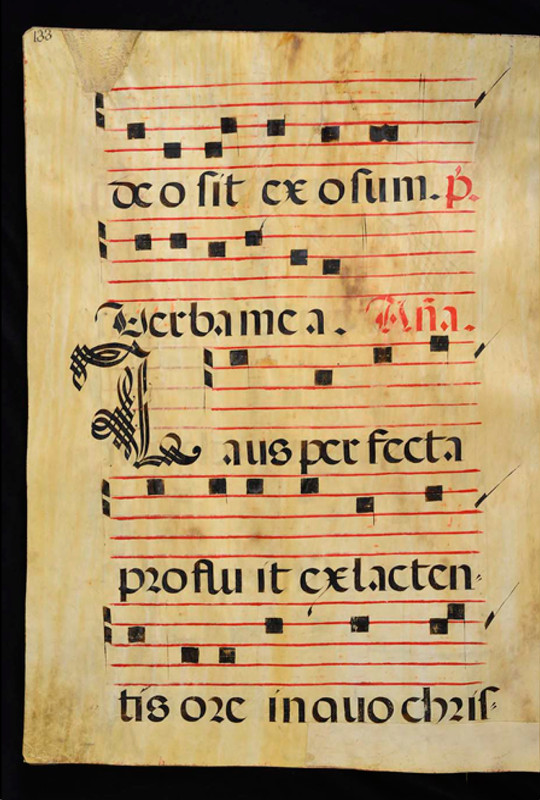 133
deo sit exosum. p̄.
Verba mea. Aña.
Laus perfecta
profluit ex lacten⸗
tis ore in quo chris⸗